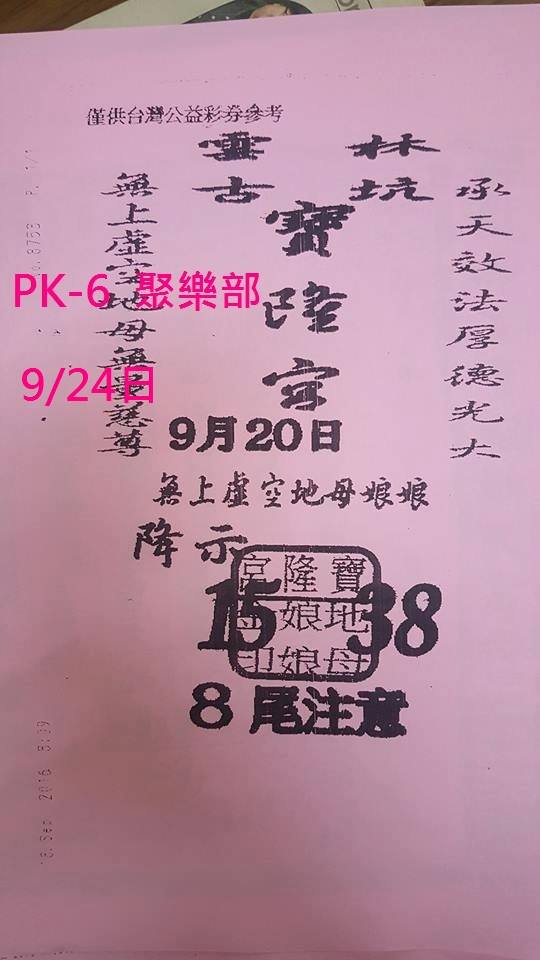 僅供台灣公益彩券參考
雲林
古坑
寶隆宮
承天效法厚德光大
無上虛空地母無量慈尊
PK-6 聚樂部
9/24日
9月20日
無上虛空地母娘娘
降示
15 38
寶地母
隆娘娘
宮 印
8尾注意
8753 P. 1/1
Sep 2016